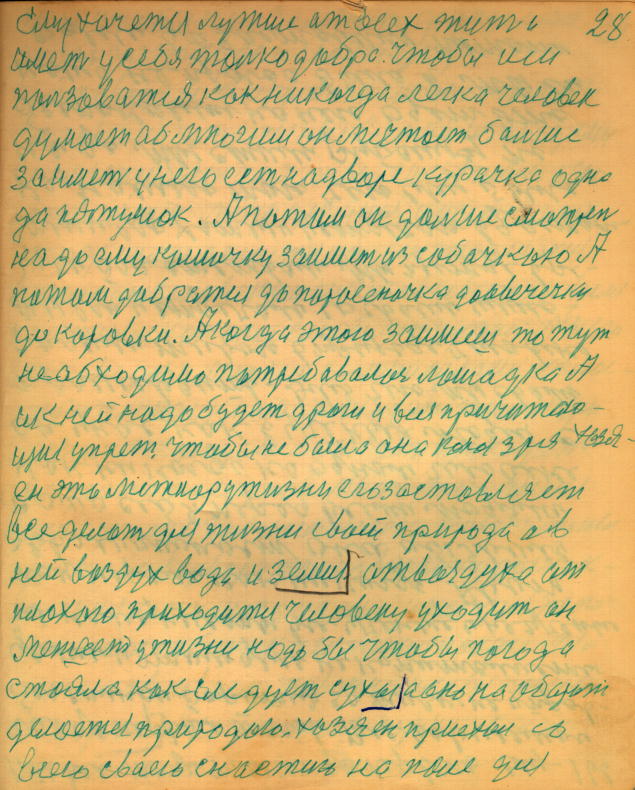 Ему хочется лутше от всех жить и 28
имет у себя толко добро. чтобы им
ползоватся как никогда легка человек
думает аб многим он мечтает болше
заимет у него ест на дворе курачка одна
да и петушок. А потом он далше смотрел
надо ему кошечку заимет из собачкою А
потом добратся до поросеночка до овечечки
до коровки. А когда этого заимеи то тут
необходимо потребавалас лошадка А
и к ней надо будет дроги и вся причитаю-
щия упреж. чтобы не была она кака зря хозя-
ен эты метнору жизни его заставляет
все делат для жизни своей природа а в
ней воздух вода и земия от воздуха от
плохого приходится человеку уходит он
метает у жизни надо бы чтобы погода
стояла как следует сухая а оно на обарот
делается природою. хозяен приехал со
всего сваею снастию на поле для